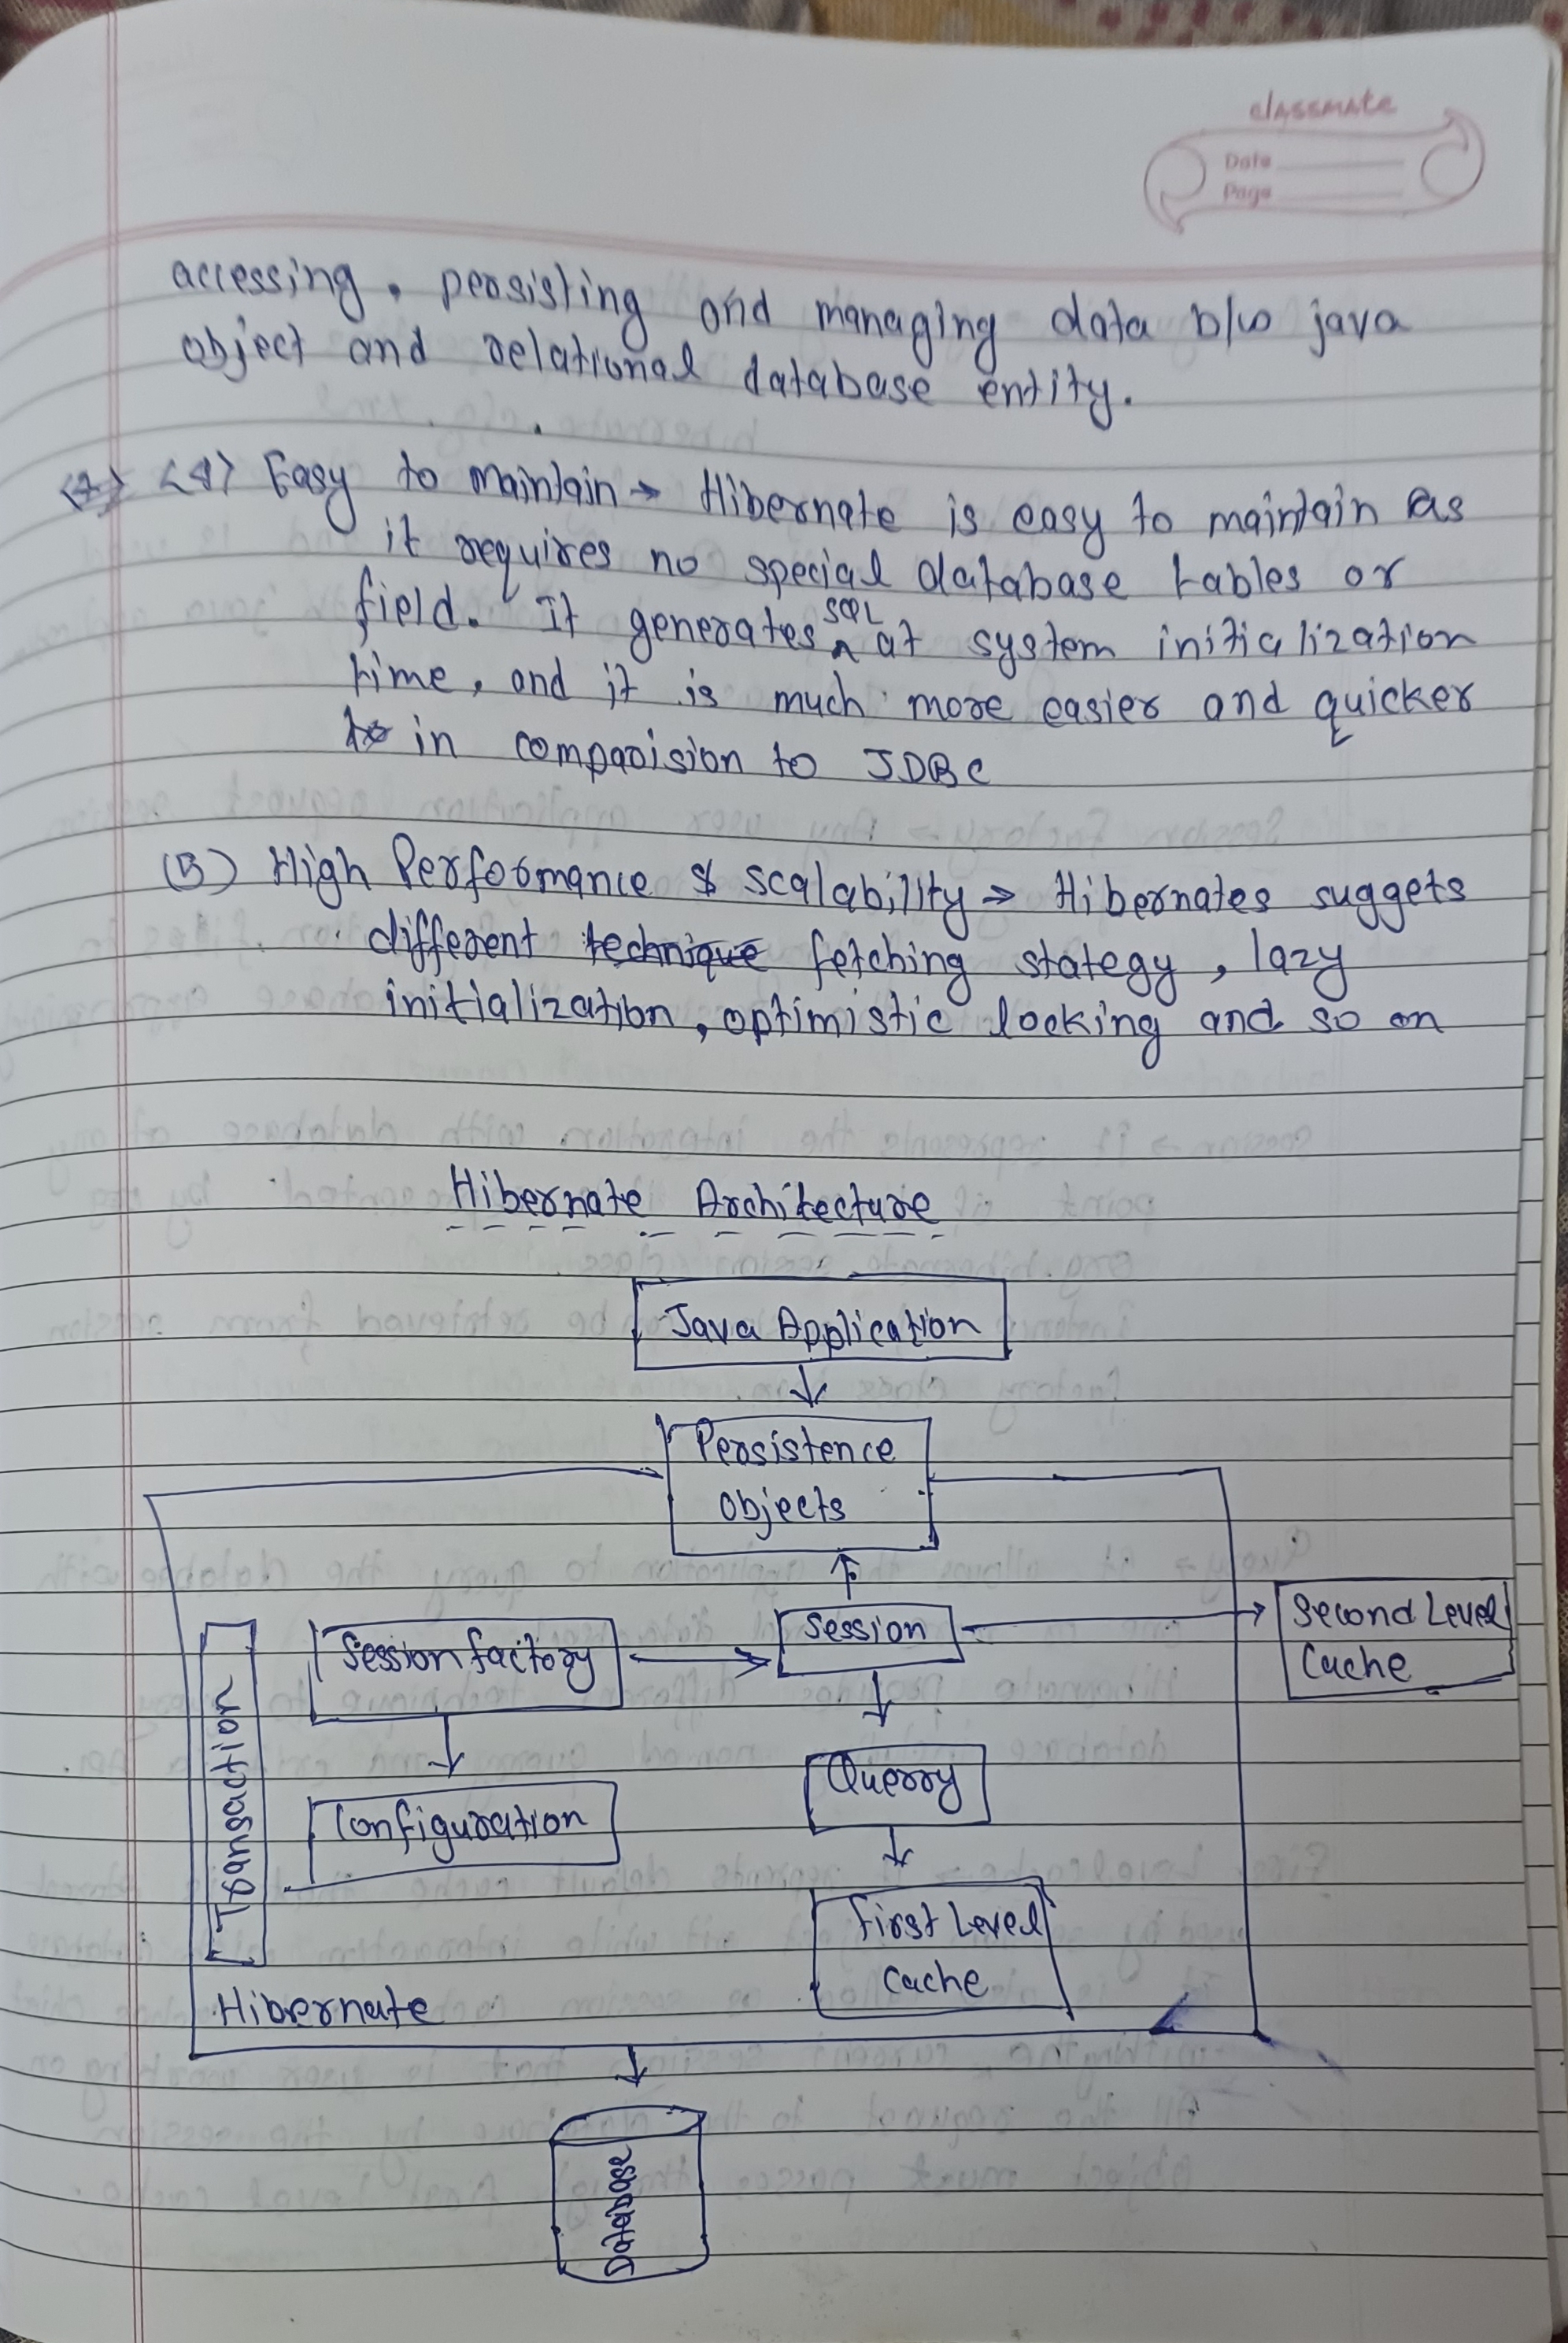 classmate
Date
Page
accessing, persisting and managing data b/w java
object and relational database entity.
<4> Easy to maintain → Hibernate is easy to maintain as
it requires no special database tables or
field. It generates SQL at system initialization
time, and it is much more easier and quicker
in compaoision to JDBC
(5) High Performance & scalability → Hibernates suggets
different technique fetching stategy, lazy
initialization, optimistic locking and so on
Hibernate Architecture
Java Application
Persistence
objects
Session factory
Session
Second Level
Cache
Transaction
Configuration
Querry
First Level
Cache
Hibernate
Database